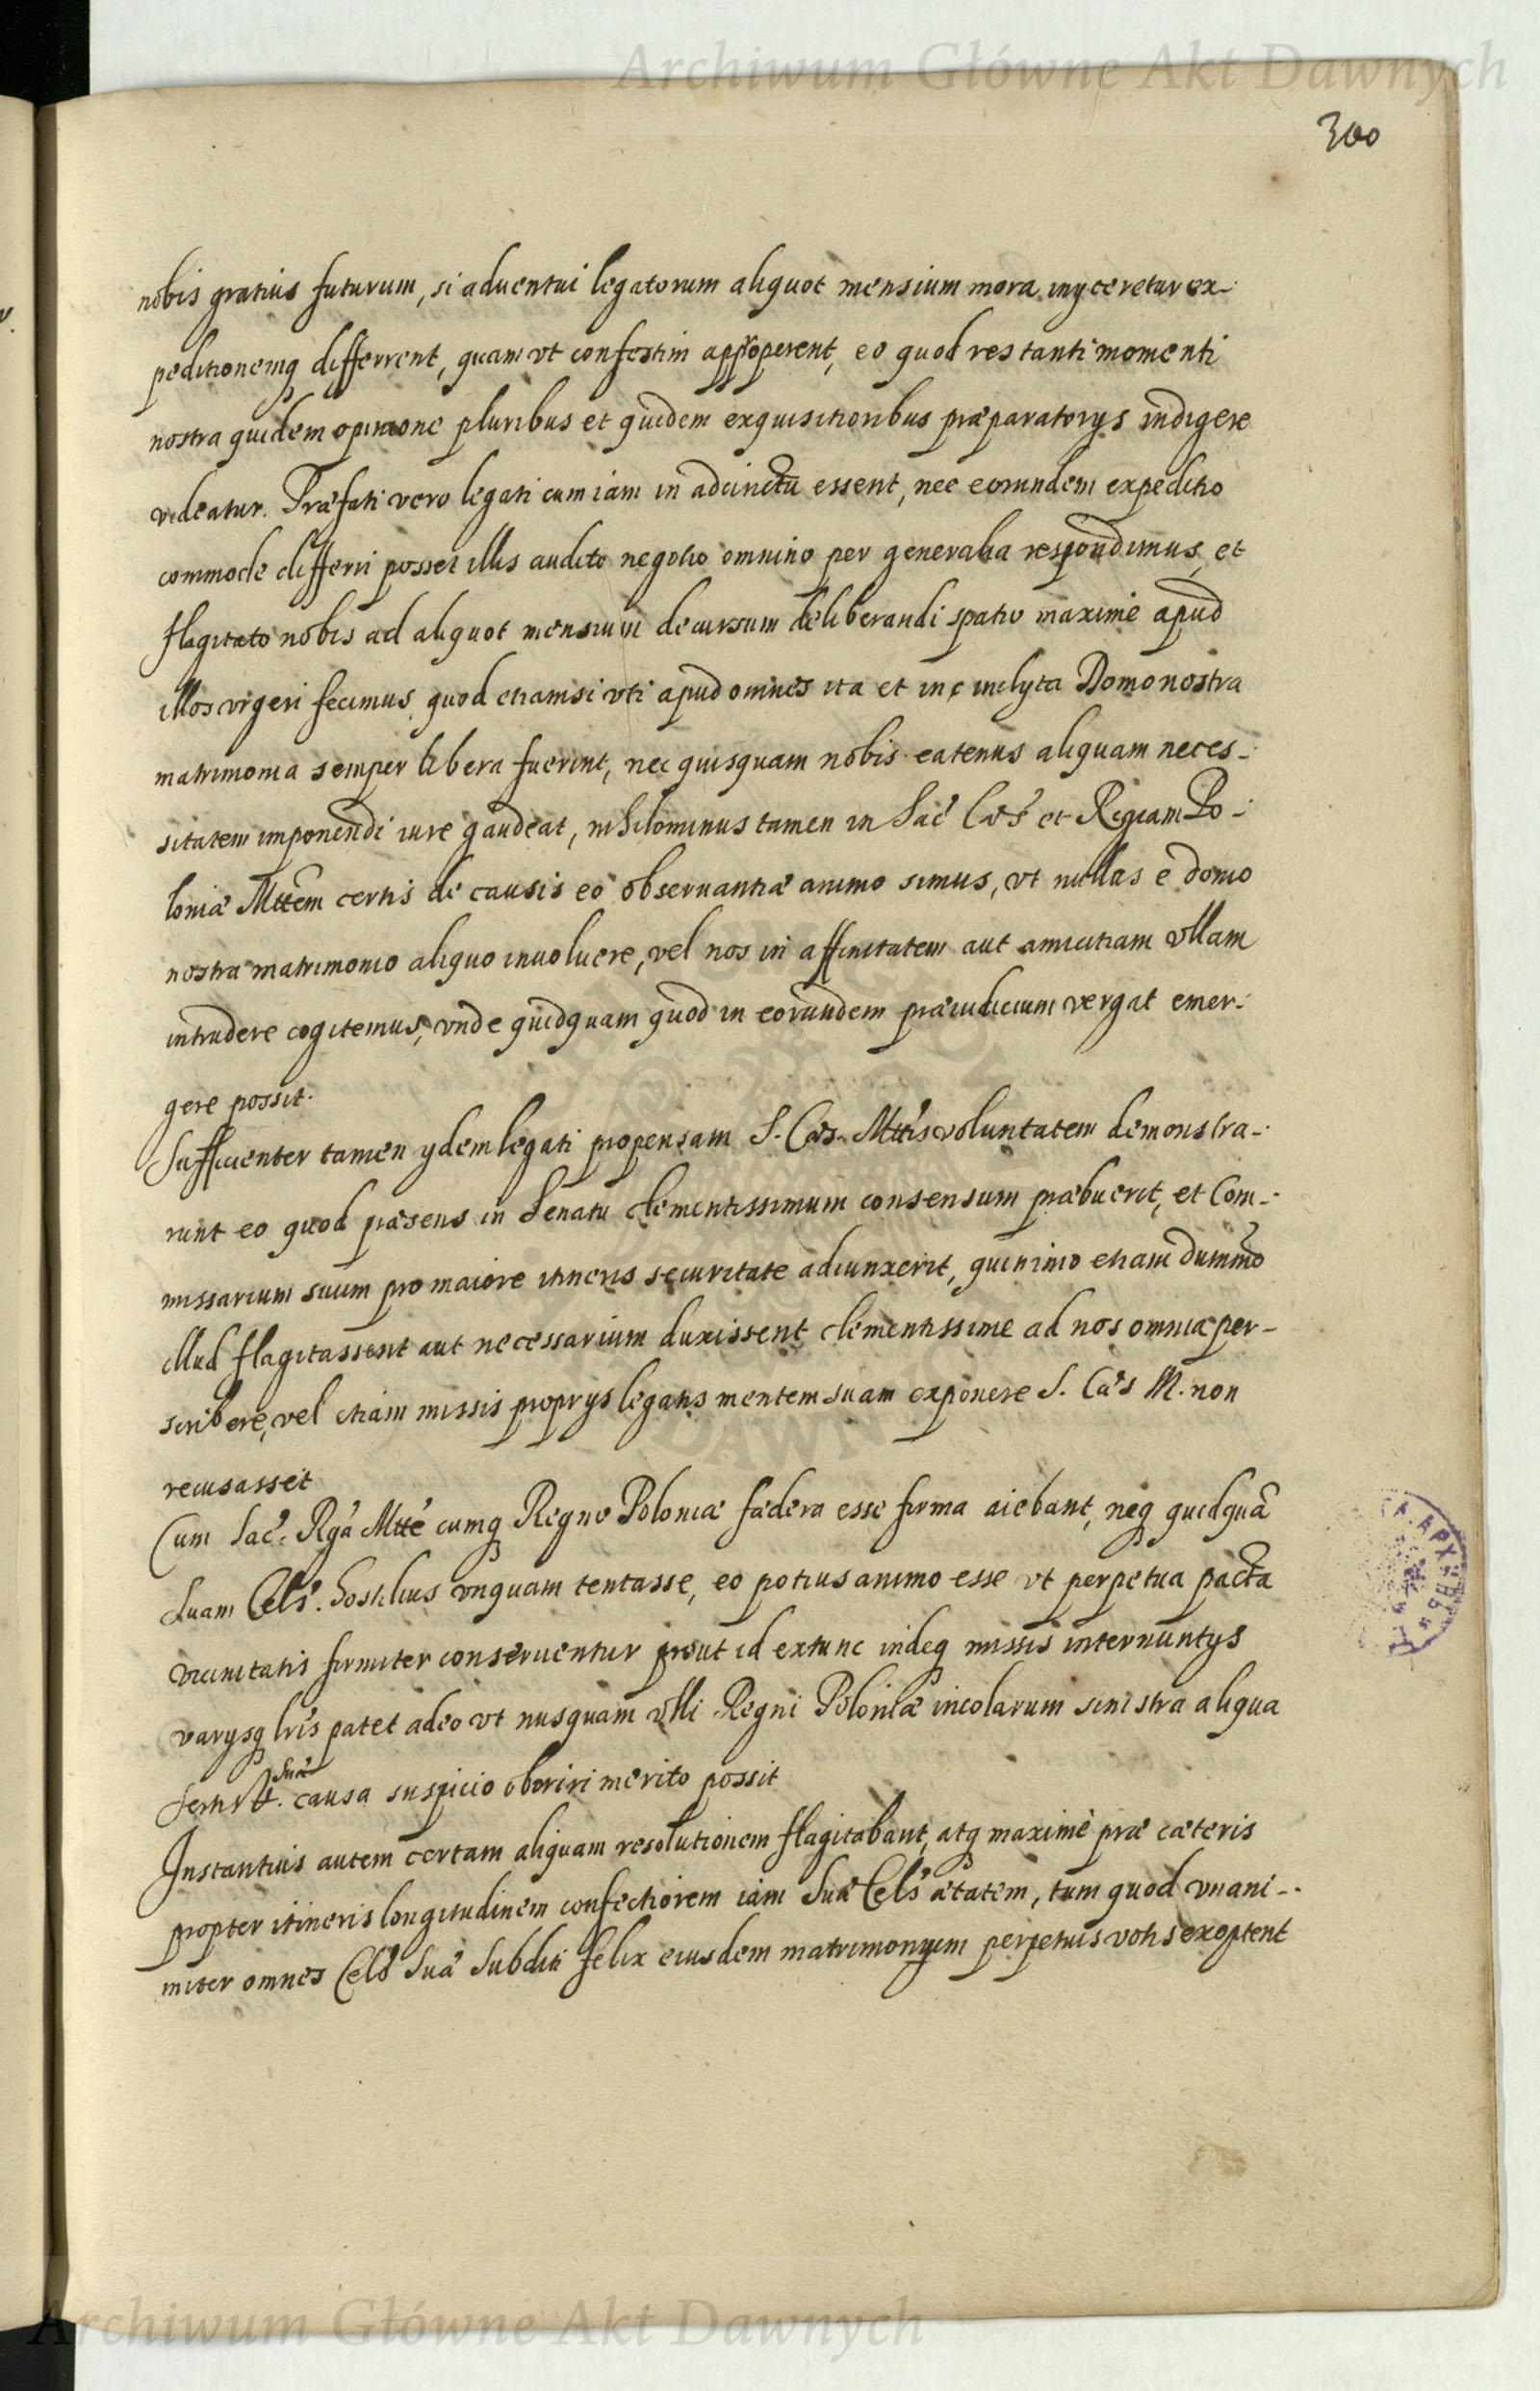 Archiwum Główne Akt Dawnych
300
nobis gratius futurum, si aduentui legatorum aliquot mensium mora inyceretur ex-
peditionemq differrent, quam vt confestim approperent, eo quod res tanti momenti
nostra quidem opinione pluribus et quidem exquisitioribus præparatorys indigere
videatur. Præfati vero legati cum iam in adcinctu essent, nec eorundem expeditio
commode differri posset illis audito negotio omnino per generalia respondimus, et
flagitato nobis ad aliquot mensium decursum deliberandi spatio maxime apud
illos vrgeri fecimus, quod etiamsi vti apud omnes ita et in inclyta Domo nostra
matrimonia semper libera fuerint, nec quisquam nobis eatenus aliquam neces-
sitatem imponendi iure gaudeat, nihilominus tamen in Sac Cæs et Regiam Po-
loniæ Mttem certis de causis eo obseruantiæ animo simus, vt nullas e domo
nostra matrimonio aliquo inuoluere, vel nos in affinitatem aut amicitiam vllam
intrudere cogitemus, vnde quidquam quod in eorundem præiudicium vergat emer-
gere possit.
Sufficienter tamen ydem legati propensam S. Cæs. Mttis voluntatem demonstra-
runt eo quod præsens in Senatu clementissimum consensum præbuerit, et Com-
missarium suum pro maiore itineris securitate adiunxerit, quinimo etiam dummo
illud flagitassent aut necessarium duxissent clementissime ad nos omnia per-
scribere, vel etiam missis proprys legatis mentem suam exponere S. Cæs M. non
recusasset
Cum Sac. Rga Mtte cumq Regno Poloniæ fædera esse firma aiebant, neq quidquã
Suam Cels. hostilius vnquam tentasse, eo potius animo esse vt perpetua pacta
vicinitatis firmiter conseruentur prout id extunc indeq missis internuntys
varysq lris patet adeo vt nusquam vlli Regni Poloniæ incolarum sinistra aliqua
Suæ
causa suspicio oboriri merito possit
Instantius autem certam aliquam resolutionem flagitabant, atq maxime præ cæteris
propter itineris longitudinem confectiorem iam Suæ Cels ætatem, tum quod vnani-
miter omnes Cels Suæ Subditi felix eiusdem matrimonyum perpetuis votis exoptent
Archiwum Główne Akt Dawnych